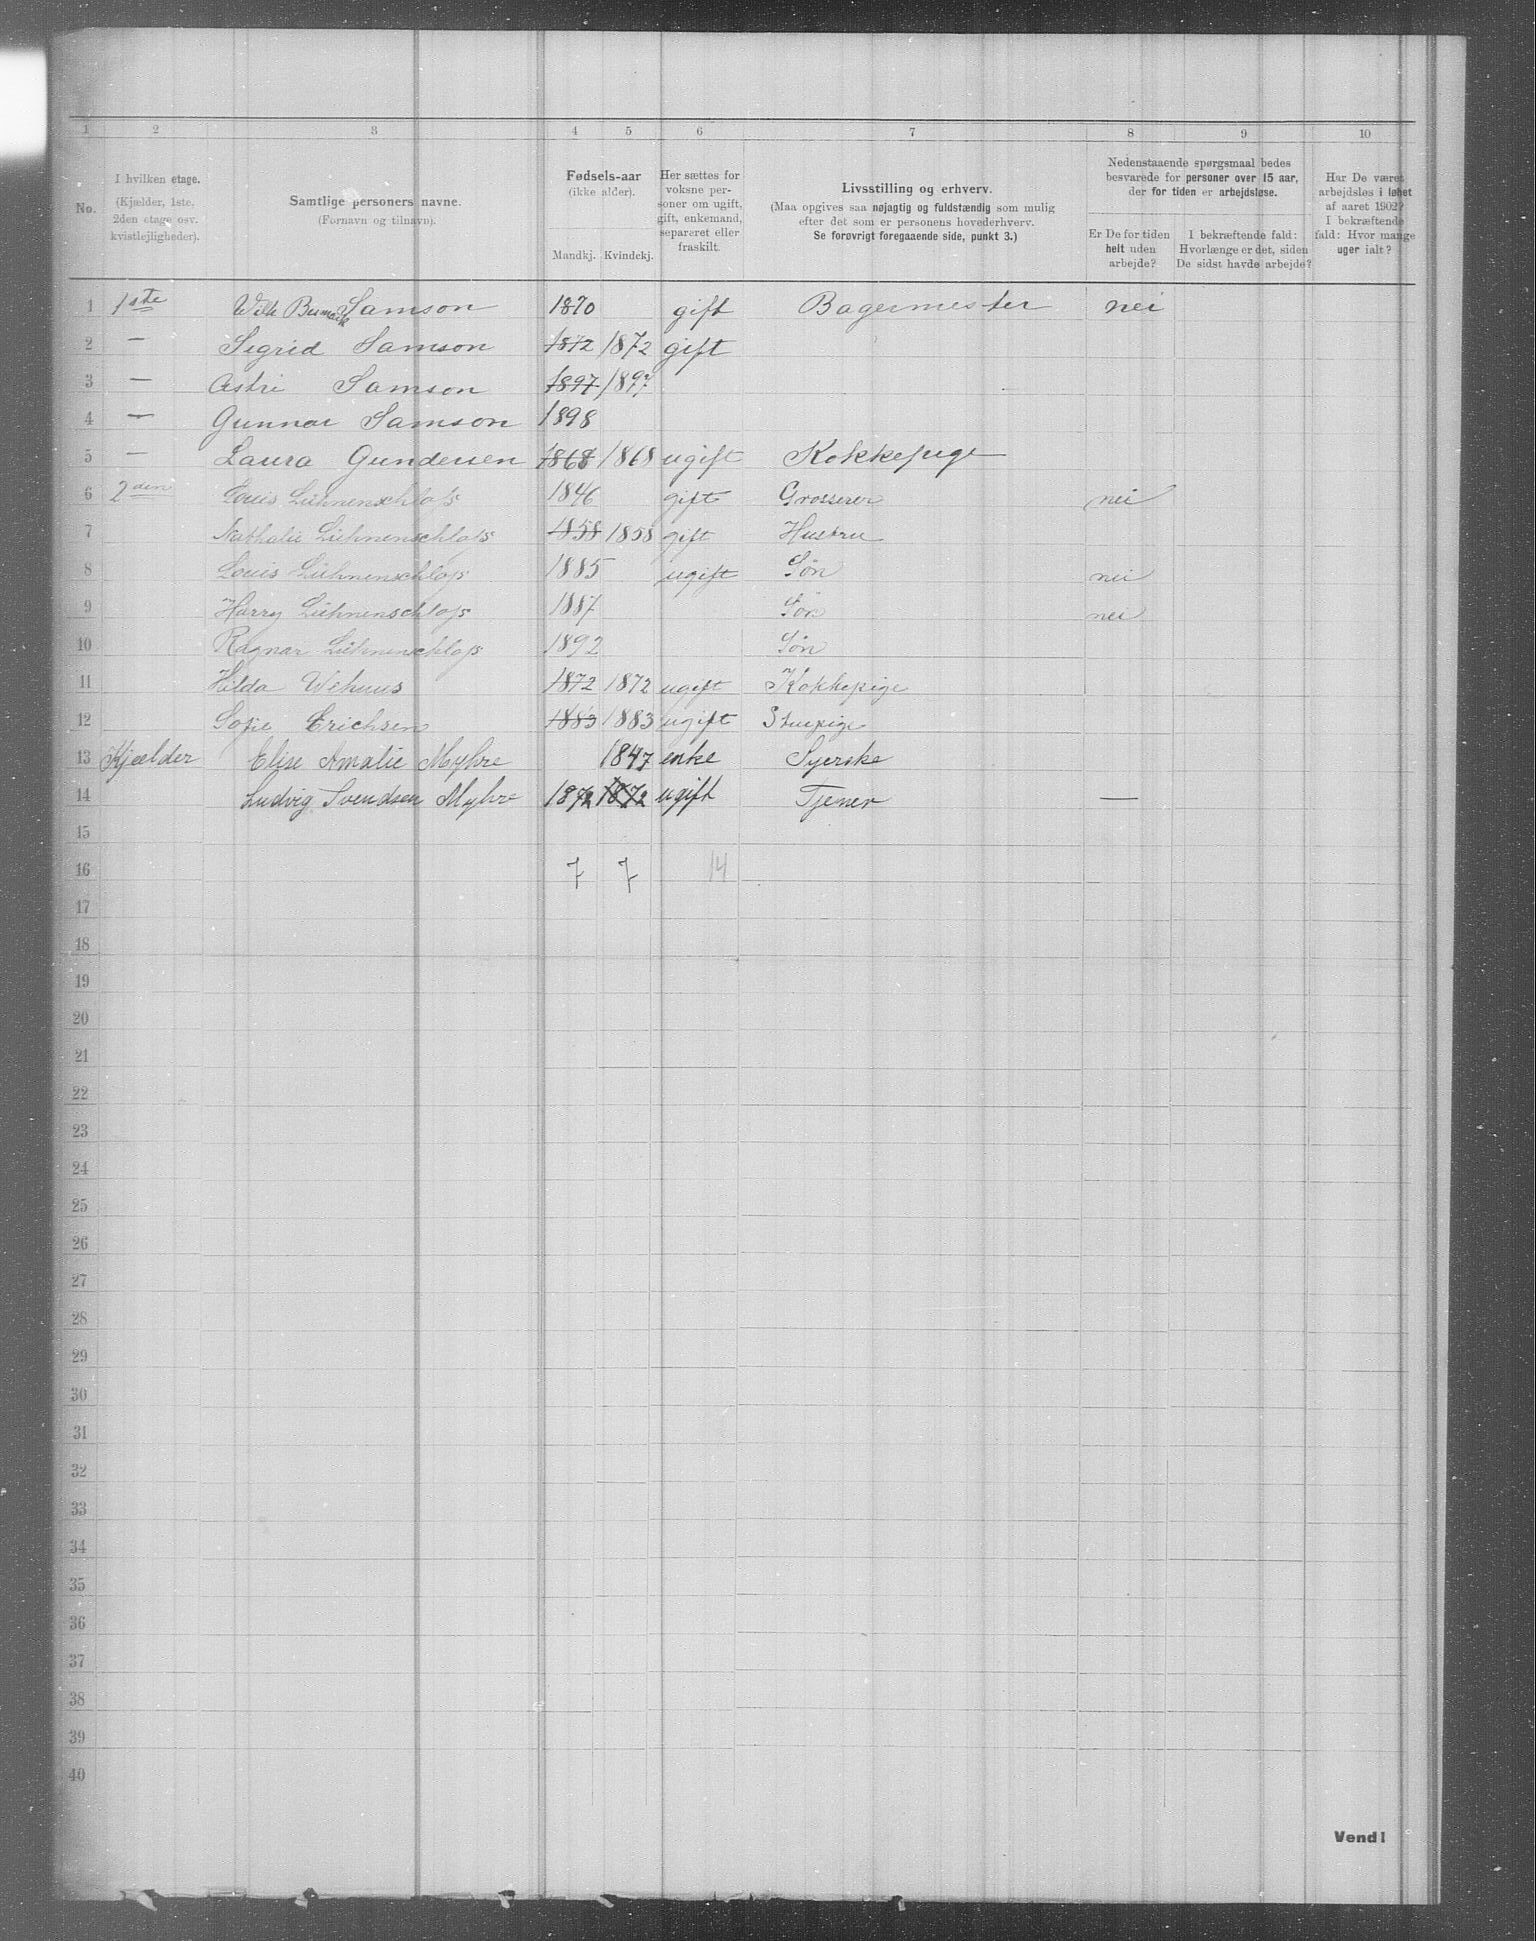 1 2 3 4 5 6 7 8 9 10
No.
I hvilken etage.
(Kjælder, 1ste,
2den etage osv.
kvistlejligheder).
Samtlige personers navne.
(Fornavn og tilnavn).
Fødsels-aar
(ikke alder).
Mandkj. Kvindekj.
Her sættes for
voksne per-
soner om ugift,
gift, enkemand,
separeret eller
fraskilt.
Livsstilling og erhverv.
(Maa opgives saa nøjagtig og fuldstændig som mulig
efter det som er personens hovederhverv.
Se forøvrigt foregaaende side, punkt 3.)
Nedenstaaende spørgsmaal bedes
besvarede for personer over 15 aar,
der for tiden er arbejdsløse.
Er De for tiden
helt uden
arbejde?
I bekræftende fald:
Hvorlænge er det, siden
De sidst havde arbejde?
Har De været
arbejdsløs i løbet
af aaret 1902?
I bekræftende
fald: Hvor mange
uger ialt?
1 1ste Wilh Bismark Samson 1870 gift Bagermester nei
2 — Sigrid Samson 1872 1872 gift
3 — Astri Samson 1897 1897
4 — Gunnar Samson 1898
5 — Laura Gundersen 1868 1868 ugift Kokkepige
6 2den Louis Lühnenschloss 1846 gift Grosserer nei
7 Nathalie Lühnenschloss 1858 1858 gift Hustru
8 Louis Lühnenschloss 1885 ugift Søn nei
9 Harry Lühnenschloss 1887 Søn nei
10 Ragnar Lühnenschloss 1892 Søn
11 Hilda Wehuus 1872 1872 ugift Kokkepige
12 Sofie Erichsen 1883 1883 ugift Stuepige
13 Kjælder Elise Amalie Myhre 1847 enke Syerske
14 Ludvig Svendsen Myhre 1872 1872 ugift Tjener —
15
16 7 7 14
17
18
19
20
21
22
23
24
25
26
27
28
29
30
31
32
33
34
35
36
37
38
39
40
Vend!